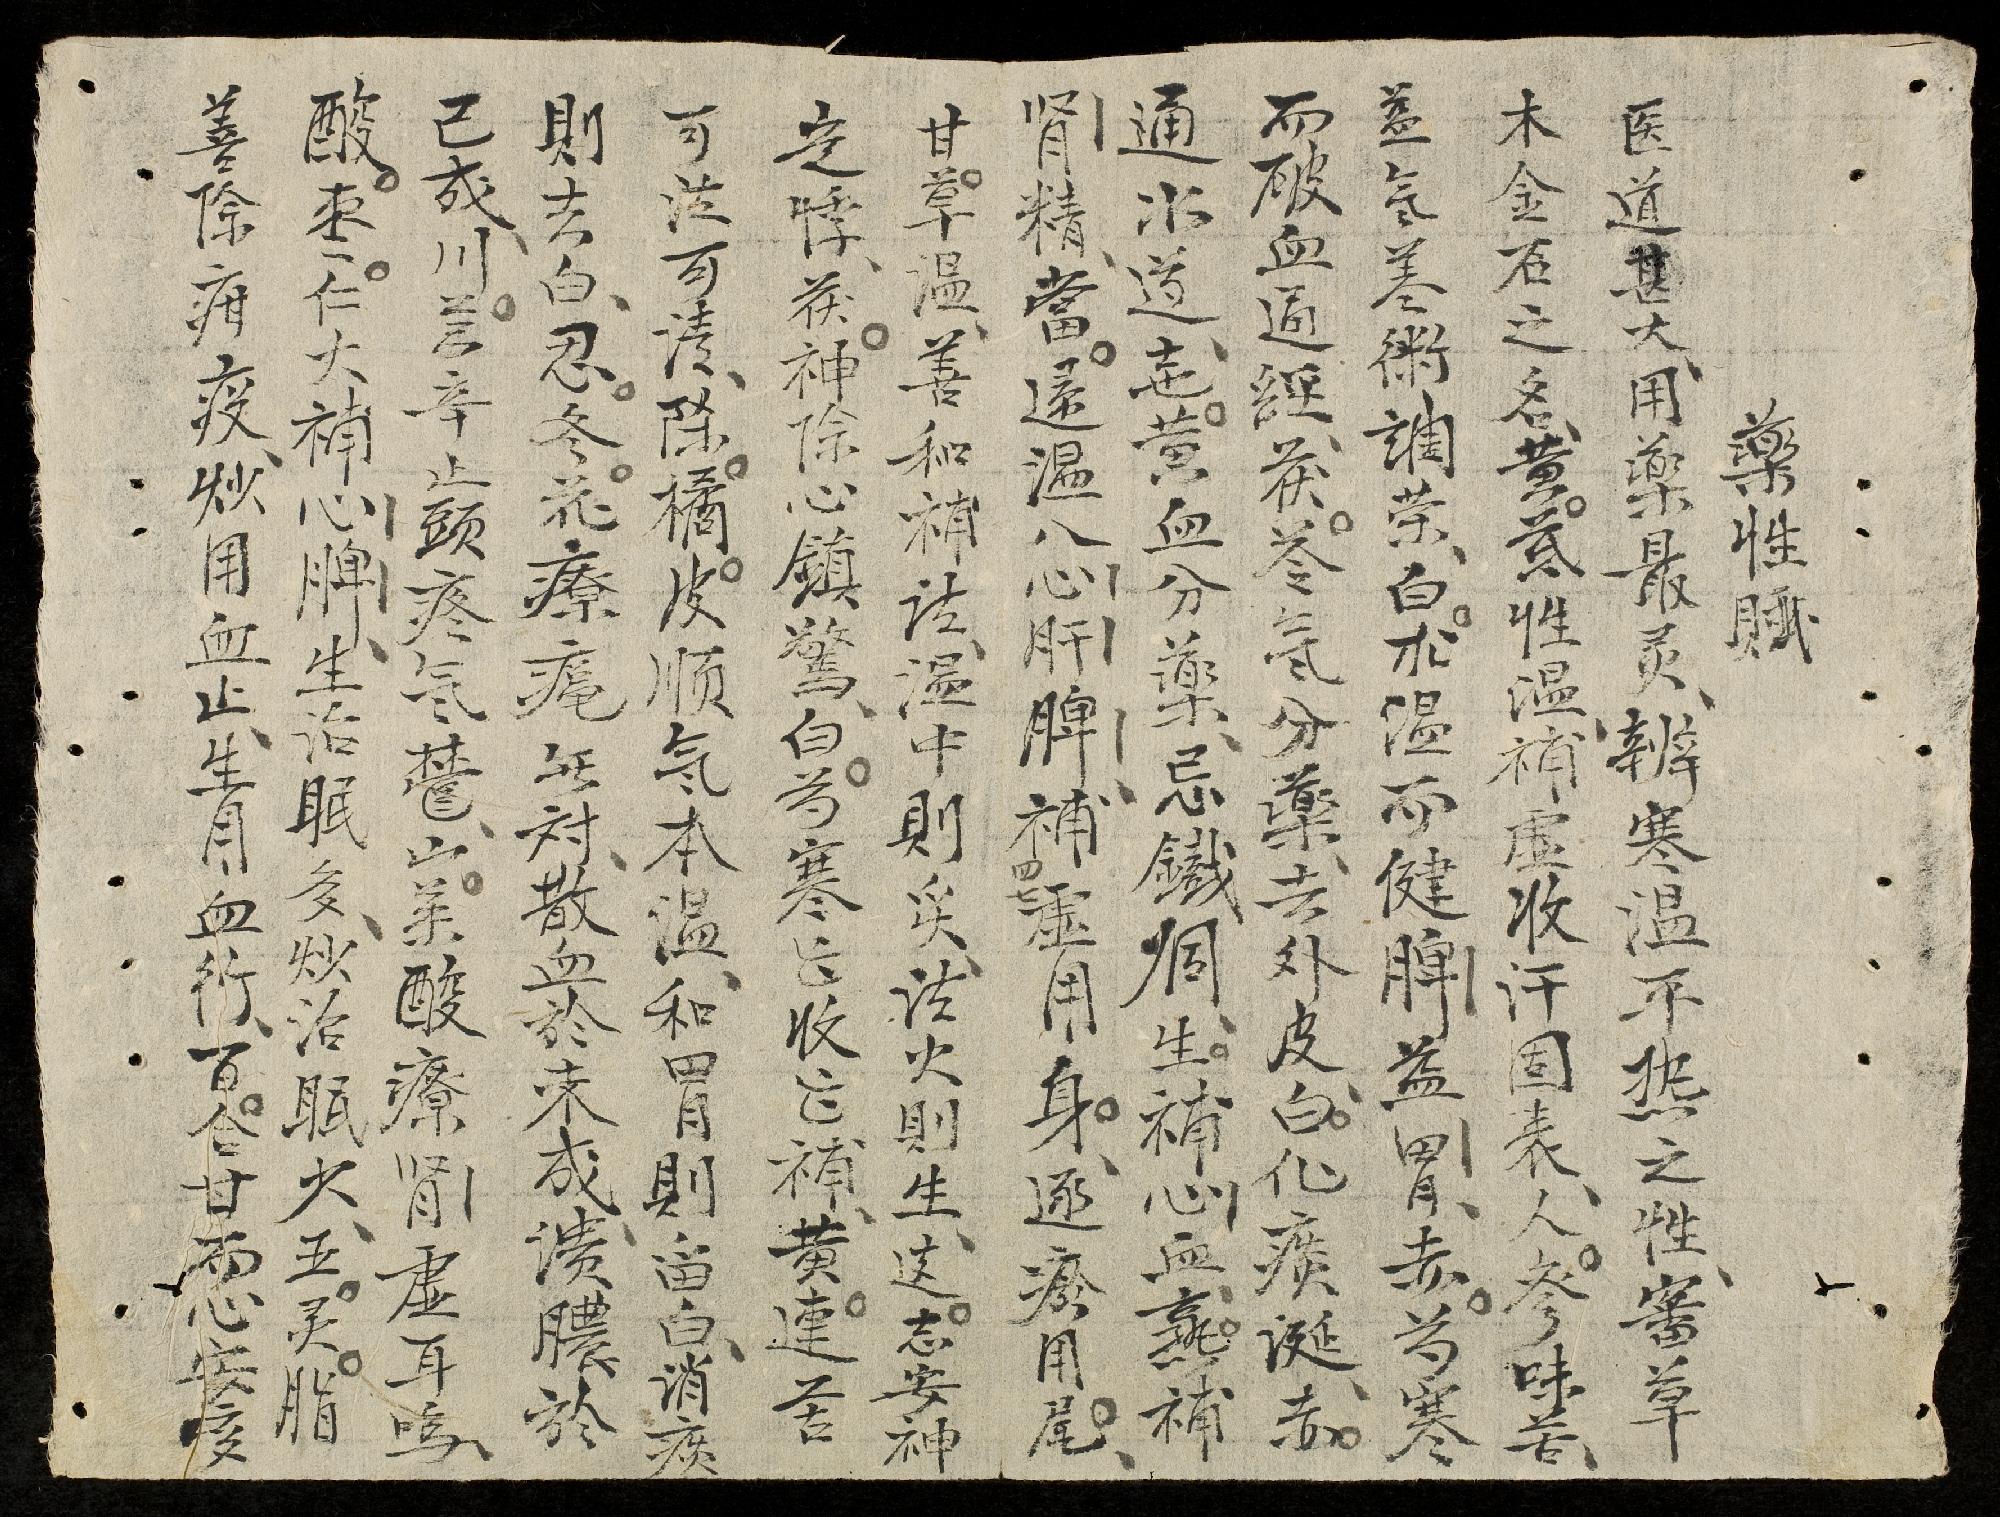 藥性賦
医道甚大、用藥最灵、辨寒温平热之性、審草
木金石之名、黄芪性温補虚收汗固表、人参味苦、
益氣養衛調荣、白朮温而健脾益胃、赤芍寒
而破血通經、茯苓氣分藥、去外皮、白化痰涎、赤
通水道、地黄血分藥、忌鐵銅、生補心血、熟補
肾精、當归温入心肝脾、補虚用身、逐瘀用尾、
甘草温、善和補法、温中則炙、法火則生、远志安神
定悸、茯神除心鎮驚、白芍寒能收能補、黄連苦
可法可清、除橘皮順氣本温、和胃則留白、消痰
則去白、忍冬花療瘡無対、散血於未成、潰膿於
已成、川芎辛止頭疼氣鬱、山茱酸療肾虚耳鸣、
酸枣仁大補心脾、生治眠多、炒治眠少、五灵脂
善除疳疫、炒用血止、生用血行、百合甘而心安疫